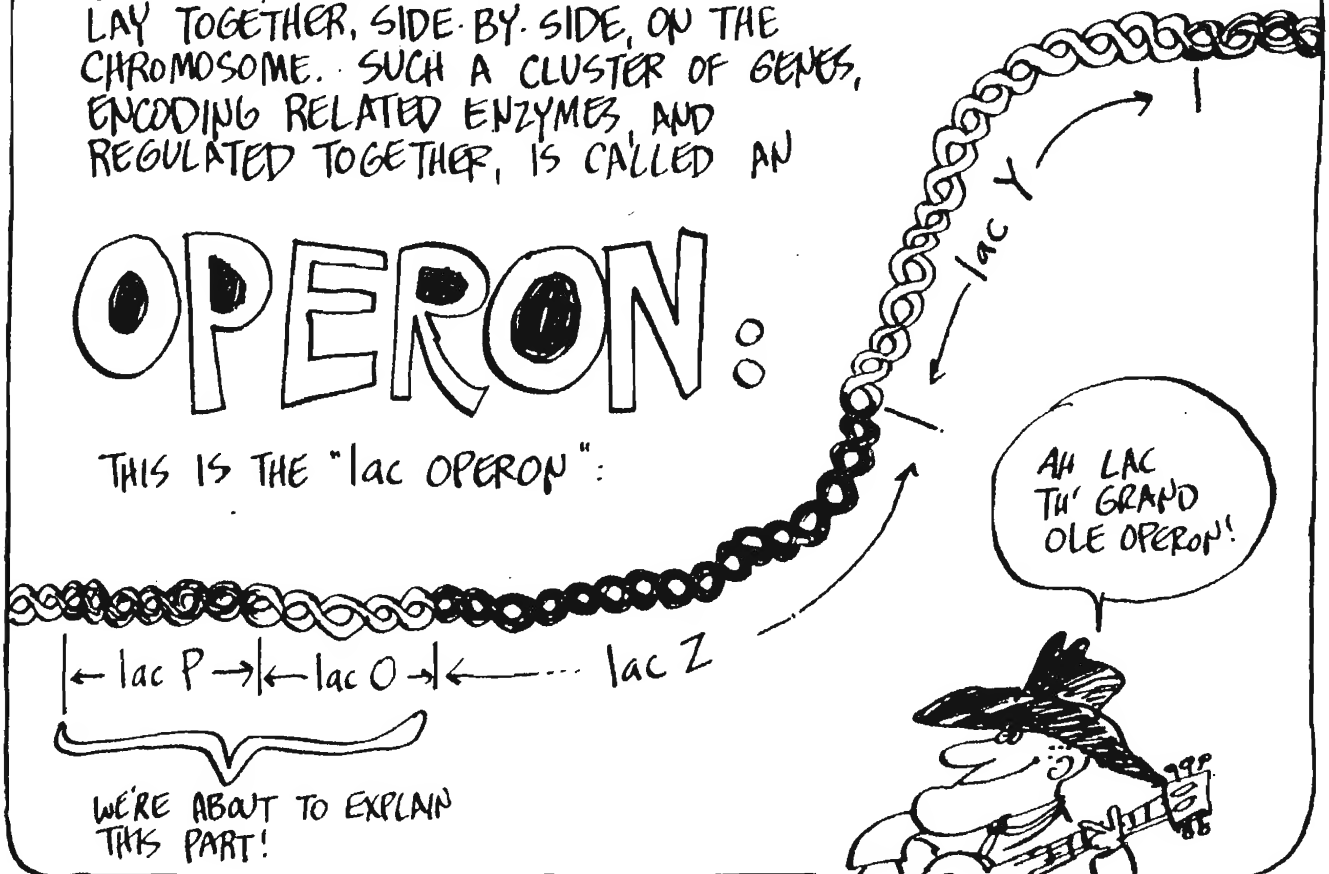 LAY TOGETHER, SIDE-BY-SIDE, ON THE
CHROMOSOME. SUCH A CLUSTER OF GENES,
ENCODING RELATED ENZYMES, AND
REGULATED TOGETHER, IS CALLED AN
OPERON:
THIS IS THE "lac OPERON":
lac Y
AH LAC
TH' GRAND
OLE OPERON!
lac P lac O lac Z
WE'RE ABOUT TO EXPLAIN
THIS PART!